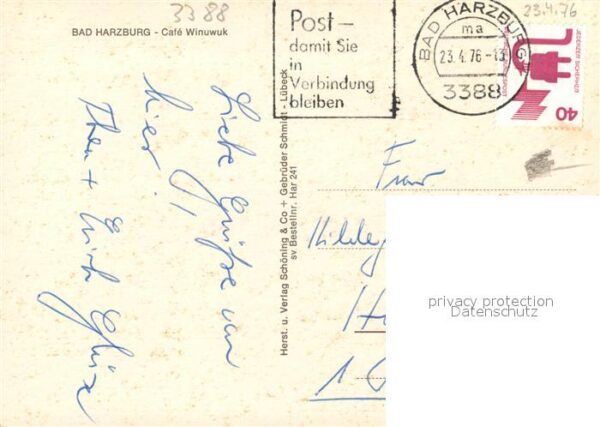 3388
23.4.76
BAD HARZBURG - Café Winuwuk
Post –
damit Sie
in
Verbindung
bleiben
BAD HARZBURG
ma
23.4.76-13
3388
JEDERZEIT SICHERHEIT
40
Liebe Grüße von
hier!
Herst. u. Verlag Schöning & Co + Gebrüder Schmidt - Lübeck
sv Bestellnr. Har 241
Frau
1
privacy protection
Datenschutz